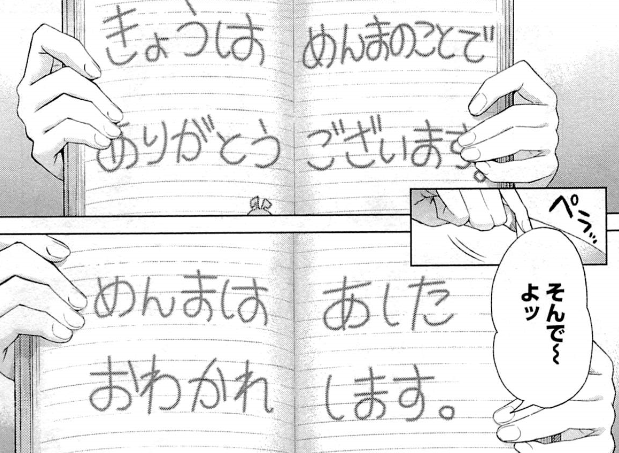 きょうは めんまのことで
ありがとう ございます。
ペラッ
そんで〜
よッ
めんまは あした
おわかれ します。